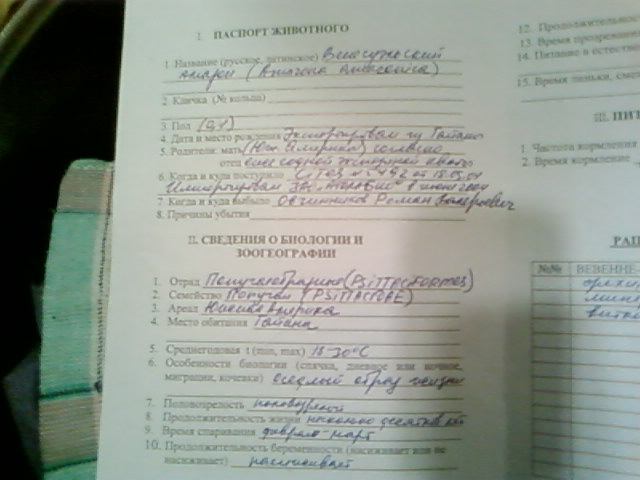 I. ПАСПОРТ ЖИВОТНОГО
1. Название (русское, латинское) Венесуэльский
амазон (Amazona Amazonica)
2. Кличка (№ кольца)
3. Пол (0,1)
4. Дата и место рождения Экспортирован из Гайаны
5. Родители: мать (Юж. Америка) согласно
отец ежегодной экспортной квоты
6. Когда и куда поступило CITES от 18.05.04
Импортирован в июне 2004
7. Когда и куда выбыло Овчинников Роман
8. Причины убытия
II. СВЕДЕНИЯ О БИОЛОГИИ И
ЗООГЕОГРАФИИ
1. Отряд Попугаеобразные (PSITTACIFORMES)
2. Семейство Попугаи (PSITTACIDAE)
3. Ареал Южная Америка
4. Место обитания Гайана
5. Среднегодовая t (min, max) 18-30°C
6. Особенности биологии (спячка, дневное или ночное,
миграции, кочевки) оседлый образ жизни
7. Половозрелость половозрелый
8. Продолжительность жизни несколько десятков лет
9. Время спаривания февраль-март
10. Продолжительность беременности (насиживает или не
насиживает) насиживает
12. Продолжительно
13. Время прозрени
14. Питание и естеств
15. Время линьки, сме
III. ПИТ
1. Частота кормления
2. Время кормление
РАЦ
№№ ВЕВЕНИЕ
орехи
мин
вита